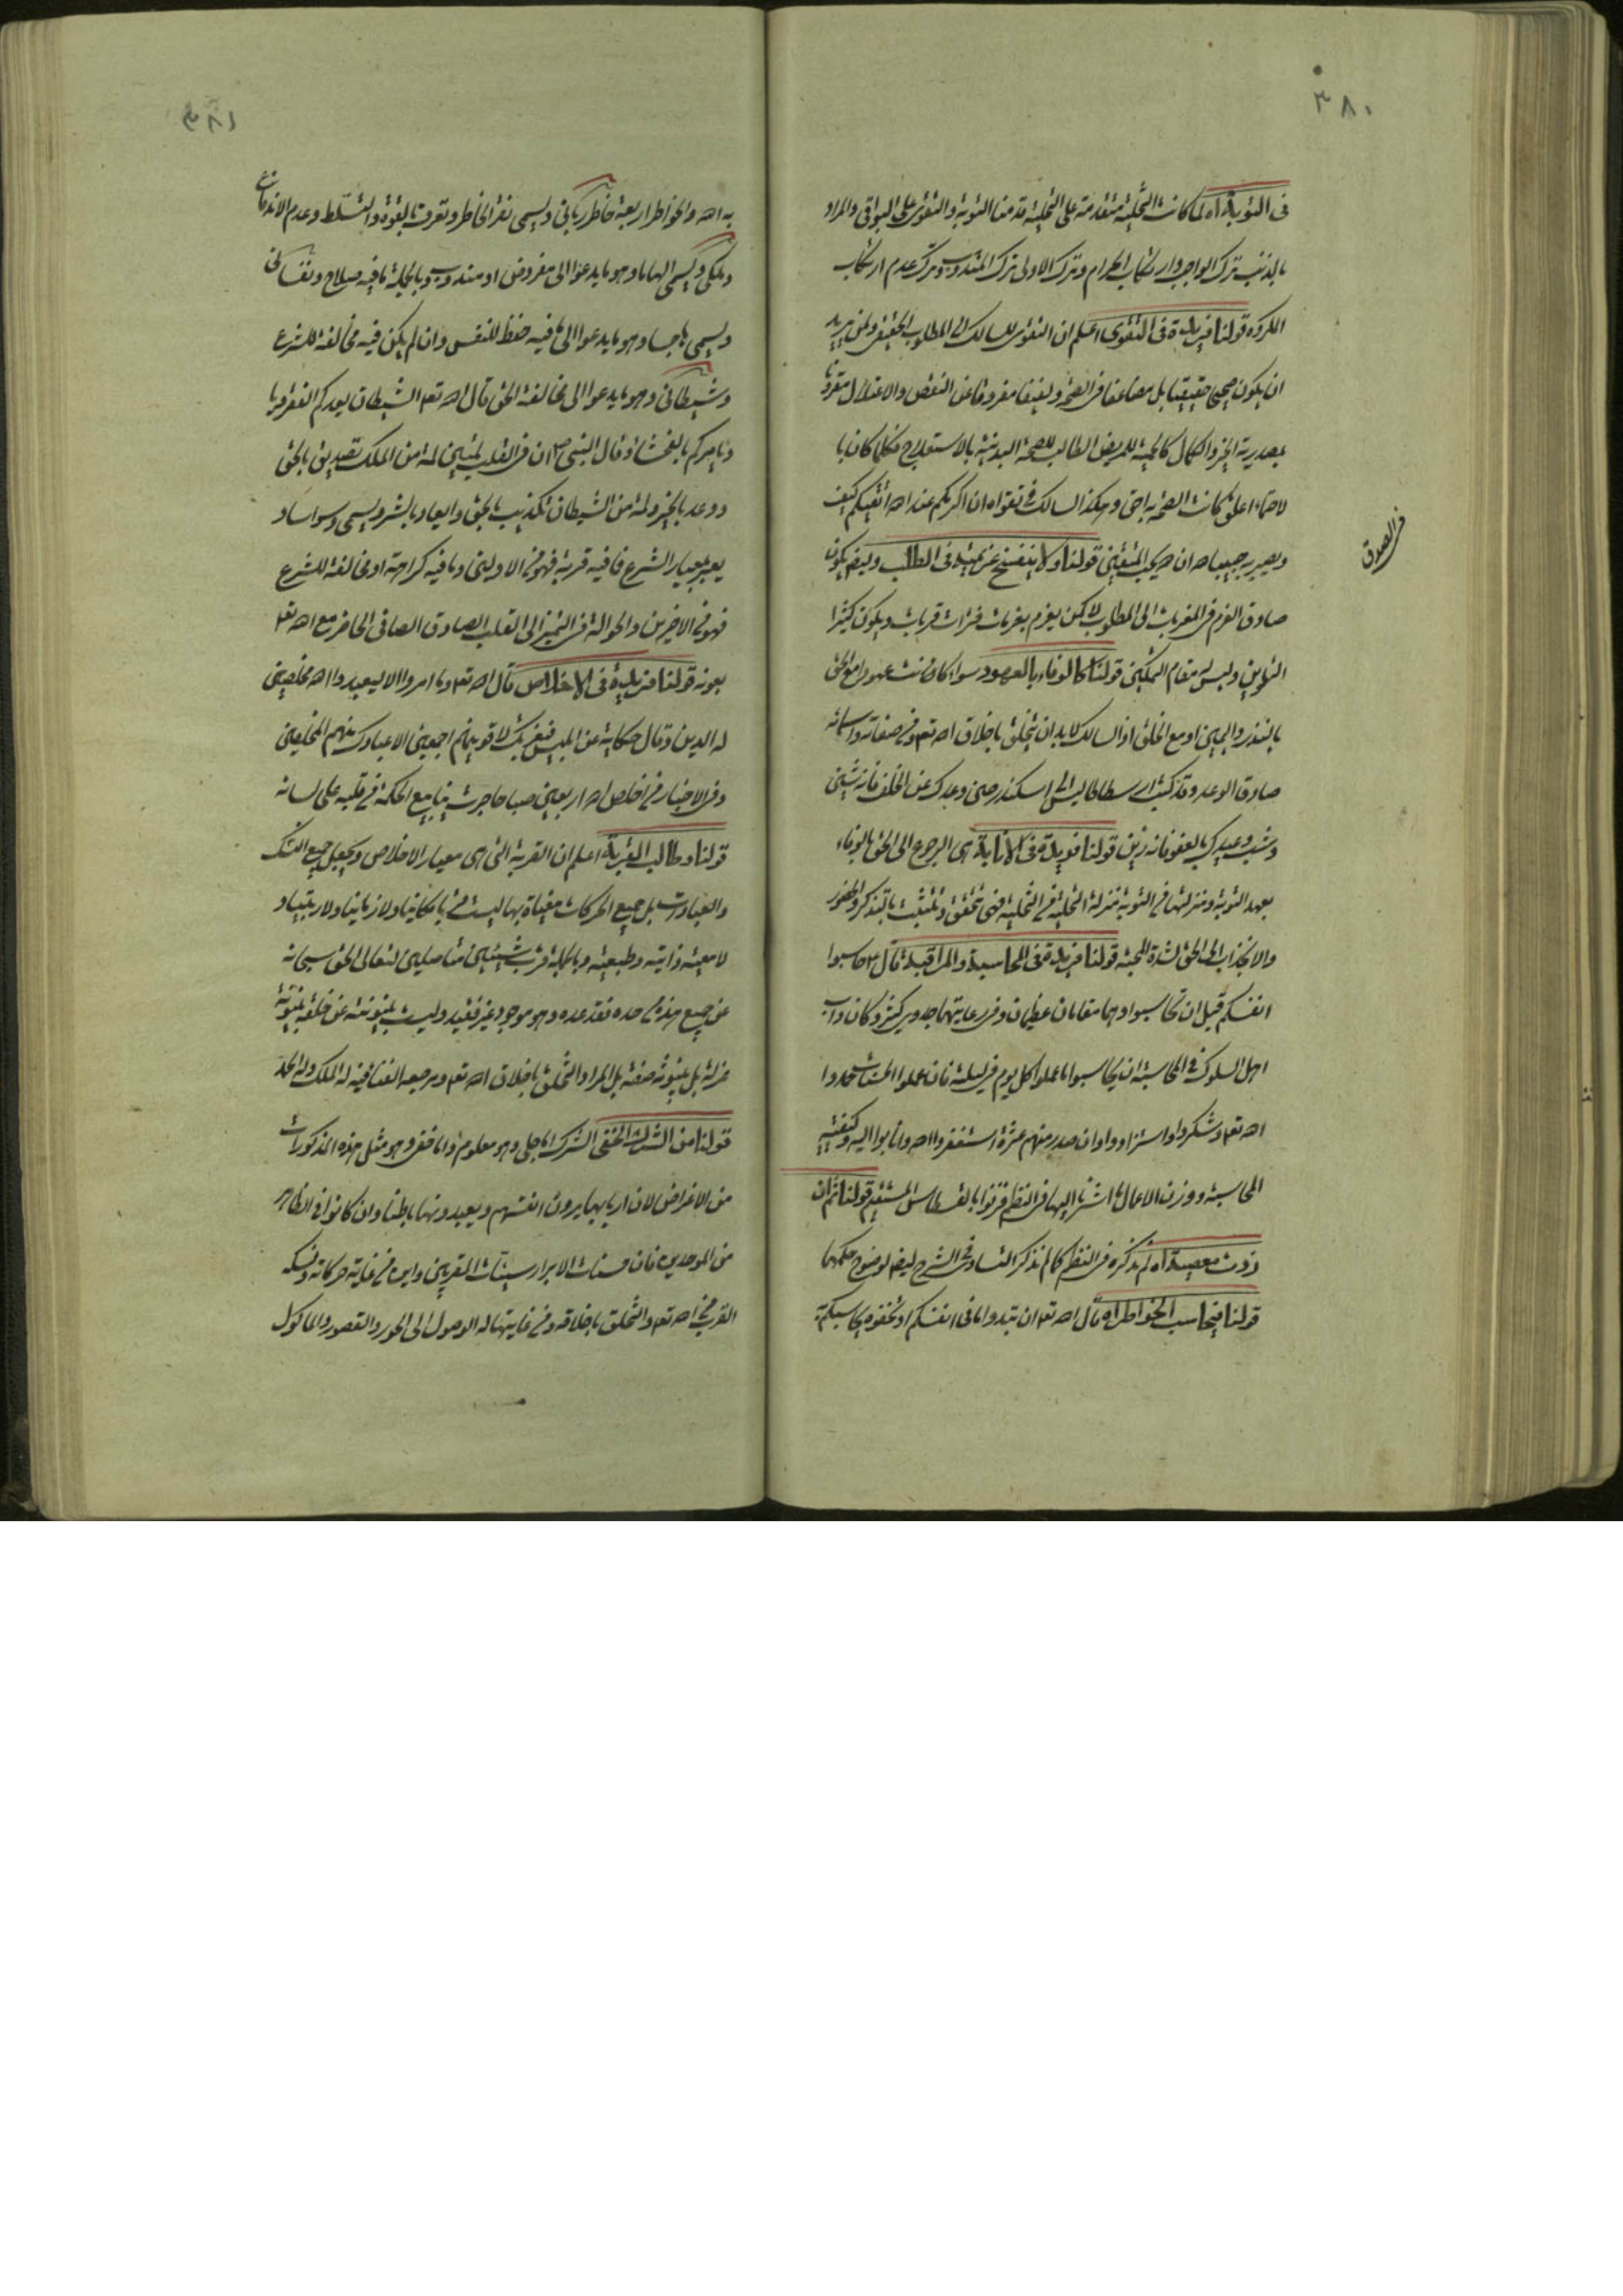 ٣٨٠
فى التوبة اه لما كانت التخلية متقدمة على التحلية قدمنا التوبة والتقوى على البواقى والمراد
بالذنب ترك الواجب وارتكاب الحرام وترك الاولى ترك المندوب وترك عدم ارتكاب
المكروه قولنا فريدة فى التقوى اعلم ان التقوى للسالك الى المطلوب الحقيقى ولمن يريد
ان يكون صحيحا حقيقيا بل مضاعفا فى الصحة ولفيفا مفروقا عن النقص والاعتلال مقرونا
بمصدرية الخير والكمال كالحمية للمريض الطالب للصحة البدنية بالاستعلاج فكلما كان با
لاحتماء اعلق كانت الصحة به احق وهكذا السالك فى تقواه ان اكرمكم عند الله اتقيكم كيف
ويصير به حبيب الله ان الله يحب المتقين قولنا ولا ينفسخ عزيمته فى الطلب وليضم يكون
فى الصدق
صادق العزم فى المقربات الى المطلوب لا كمن يعزم بقربات فترات قربات ويكون كثير
التلوين وليس له مقام التمكين قولنا كالوفاء بالعهود سواء كانت عهودا مع الحق
بالنذر واليمين او مع الخلق اذ السالك لابد ان يتخلق باخلاق الله تعم وفى صفاته واسمائه
صادق الوعد وقد كتب ارسطاطاليس الى اسكندر صن وعدك عن الخلف فانه شين
وشب وعيدك بالعفو فانه زين قولنا فريدة فى الانابة اى الرجوع الى الحق بالوفاء
بعهد التوبة ومنزلتها فى التوبة منزلة التحلية فى التخلية فهى تحقق وتثبت بالتذكر والحضور
والانجذاب الى الحق لشدة المحبة قولنا فريدة فى المحاسبة والمراقبة قال ع حاسبوا
انفسكم قبل ان تحاسبوا وهما مقامان عظيمان وفى رعايتهما جدوى كثيرة كان داب
اهل السلوك فى المحاسبة ان يحاسبوا ما عملوا كل يوم فى ليلته فان عملوا الحسنات حمدوا
الله تعم وشكروا واستزادوا وان صدر منهم عثرة استغفروا الله وانابوا اليه وكيفية
المحاسبة ووزن الاعمال ما اشرنا اليها فى النظم فزنوا بالقسطاس المستقيم قولنا ثم ان
زدت معصية اه لم نذكره فى النظم كما لم نذكر التساوى فى الشرح ليضم لوضوح حكمهما
قولنا فيحاسب الخواطر اه قال الله تعم ان تبدوا ما فى انفسكم او تخفوه يحاسبكم
٣٨١
به الله والخواطر اربعة خاطر ربانى ويسمى نقر الخاطر وتعرف بالقوة والتسلط وعدم الاندفاع
وملكى ويسمى الهاما وهو ما يدعوا الى مفروض او مندوب وبالجملة ما فيه صلاح ونفسانى
ويسمى هاجسا وهو ما يدعوا الى ما فيه حفظ للنفس وان لم يكن فيه مخالفة للشرع
وشيطانى وهو ما يدعوا الى مخالفة الحق قال الله تعم الشيطان يعدكم الفقر ويا
ويامركم بالفحشاء وقال النبى ص ان فى القلب لمتين لمة من الملك تصديق بالحق
ووعد بالخير ولمة من الشيطان تكذيب بالحق وايعاد بالشر ويسمى وسواسا و
يعير بمعيار الشرع فما فيه قربة فهو من الاولين وما فيه كراهة او مخالفة للشرع
فهو من الاخرين والحوالة فى التميز الى القلب الصادق الصافى الحاضر مع الله تعم
بعونه قولنا فريدة فى الاخلاص قال الله تعم وما امروا الا ليعبدوا الله مخلصين
له الدين وقال حكاية عن ابليس فبعزتك لاغوينهم اجمعين الا عبادك منهم المخلصين
وفى الاخبار من اخلص لله اربعين صباحا جرت ينابيع الحكمة من قلبه على لسانه
قولنا وطالب القربة اعلم ان القربة التى هى معيار الاخلاص ويجعل جميع النسك
والعبادات بل جميع الحركات مغياة بها ليست قربا مكانيا ولا زمانيا ولا رتبيا و
لا معية ذاتية وطبيعية وبالجملة قرب شيئين متاصلين لتعالى الحق سبحانه
عن جميع هذه من حده فقد عده وهو موجود غير فقيد وليست بينونته عن خلقه بينونة
عزلة بل بينونة صفة بل المراد التخلق باخلاق الله تعم ومرجعه الفناء فيه له الملك وله الحمد
قولنا من الشرك الخفى الشرك اما جلى وهو معلوم واما خفى وهو مثل هذه المذكورات
من الاغراض لان اربابها يرون انفسهم ويعبدونها باطنا وان كانوا فى الظاهر
من الموحدين فان حسنات الابرار سيئات المقربين واين من غاية حركاته ونسكه
القرب من الله تعم والتخلق باخلاقه ومن غايتهما له الوصول الى الحور والقصور والماكول